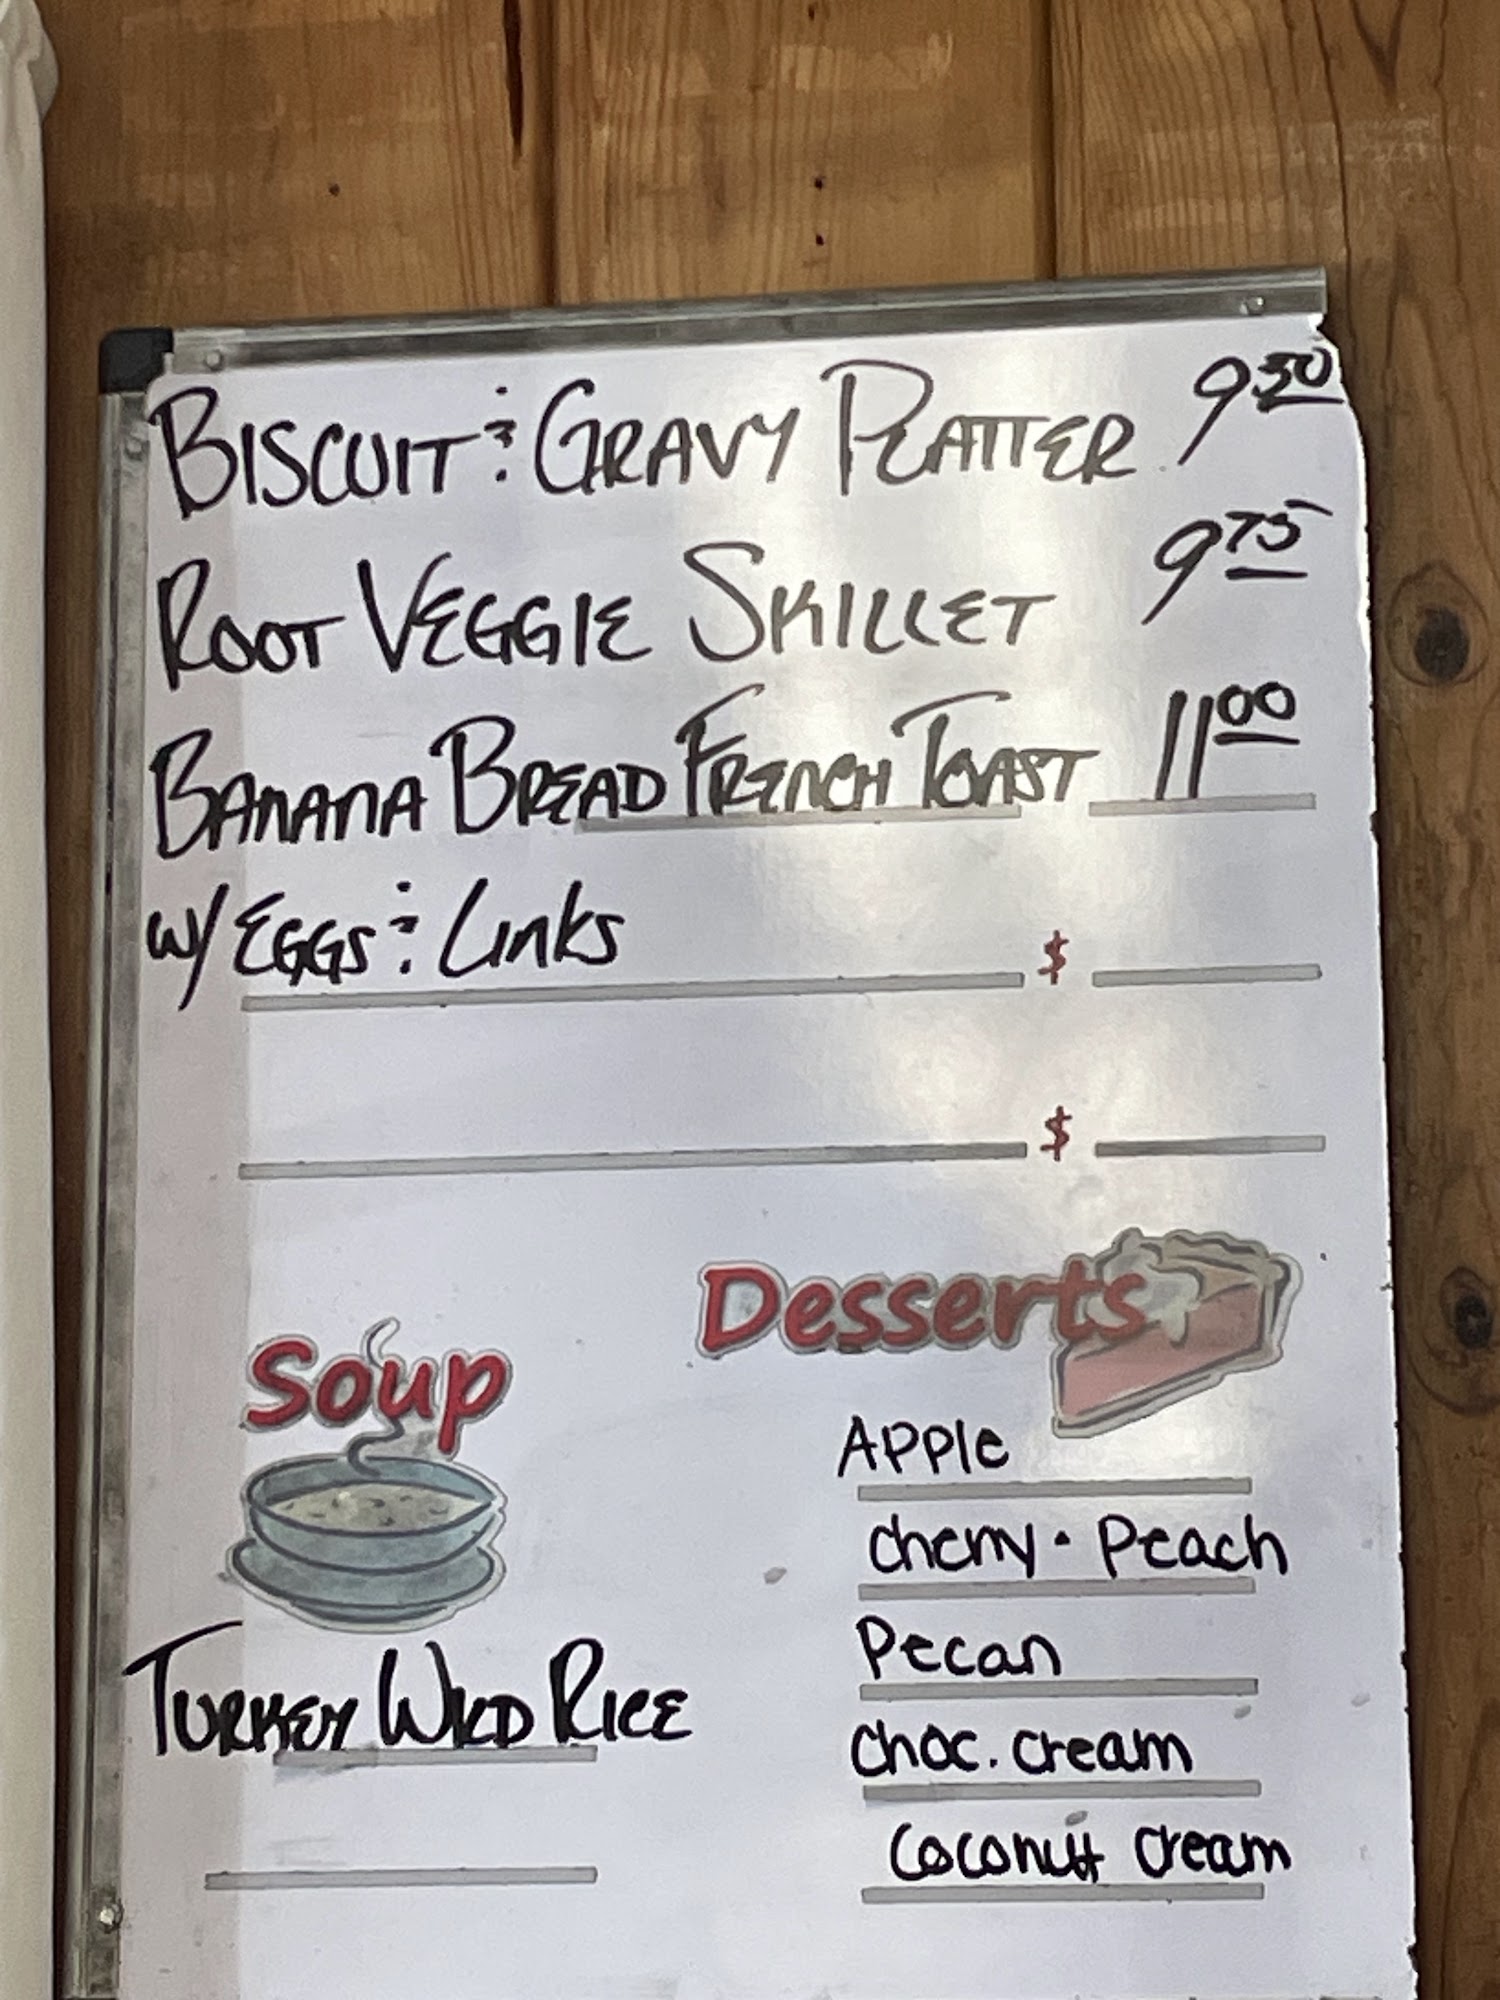 BISCUIT & GRAVY PLATTER 9.50
ROOT VEGGIE SKILLET 9 75
BANANA BREAD FRENCH TOAST 11 00
w/ EGGS & Links
$
$
Desserts
Soup
APPle
cherry · Peach
Pecan
TURKEY WILD RICE
choc. cream
Coconutt cream